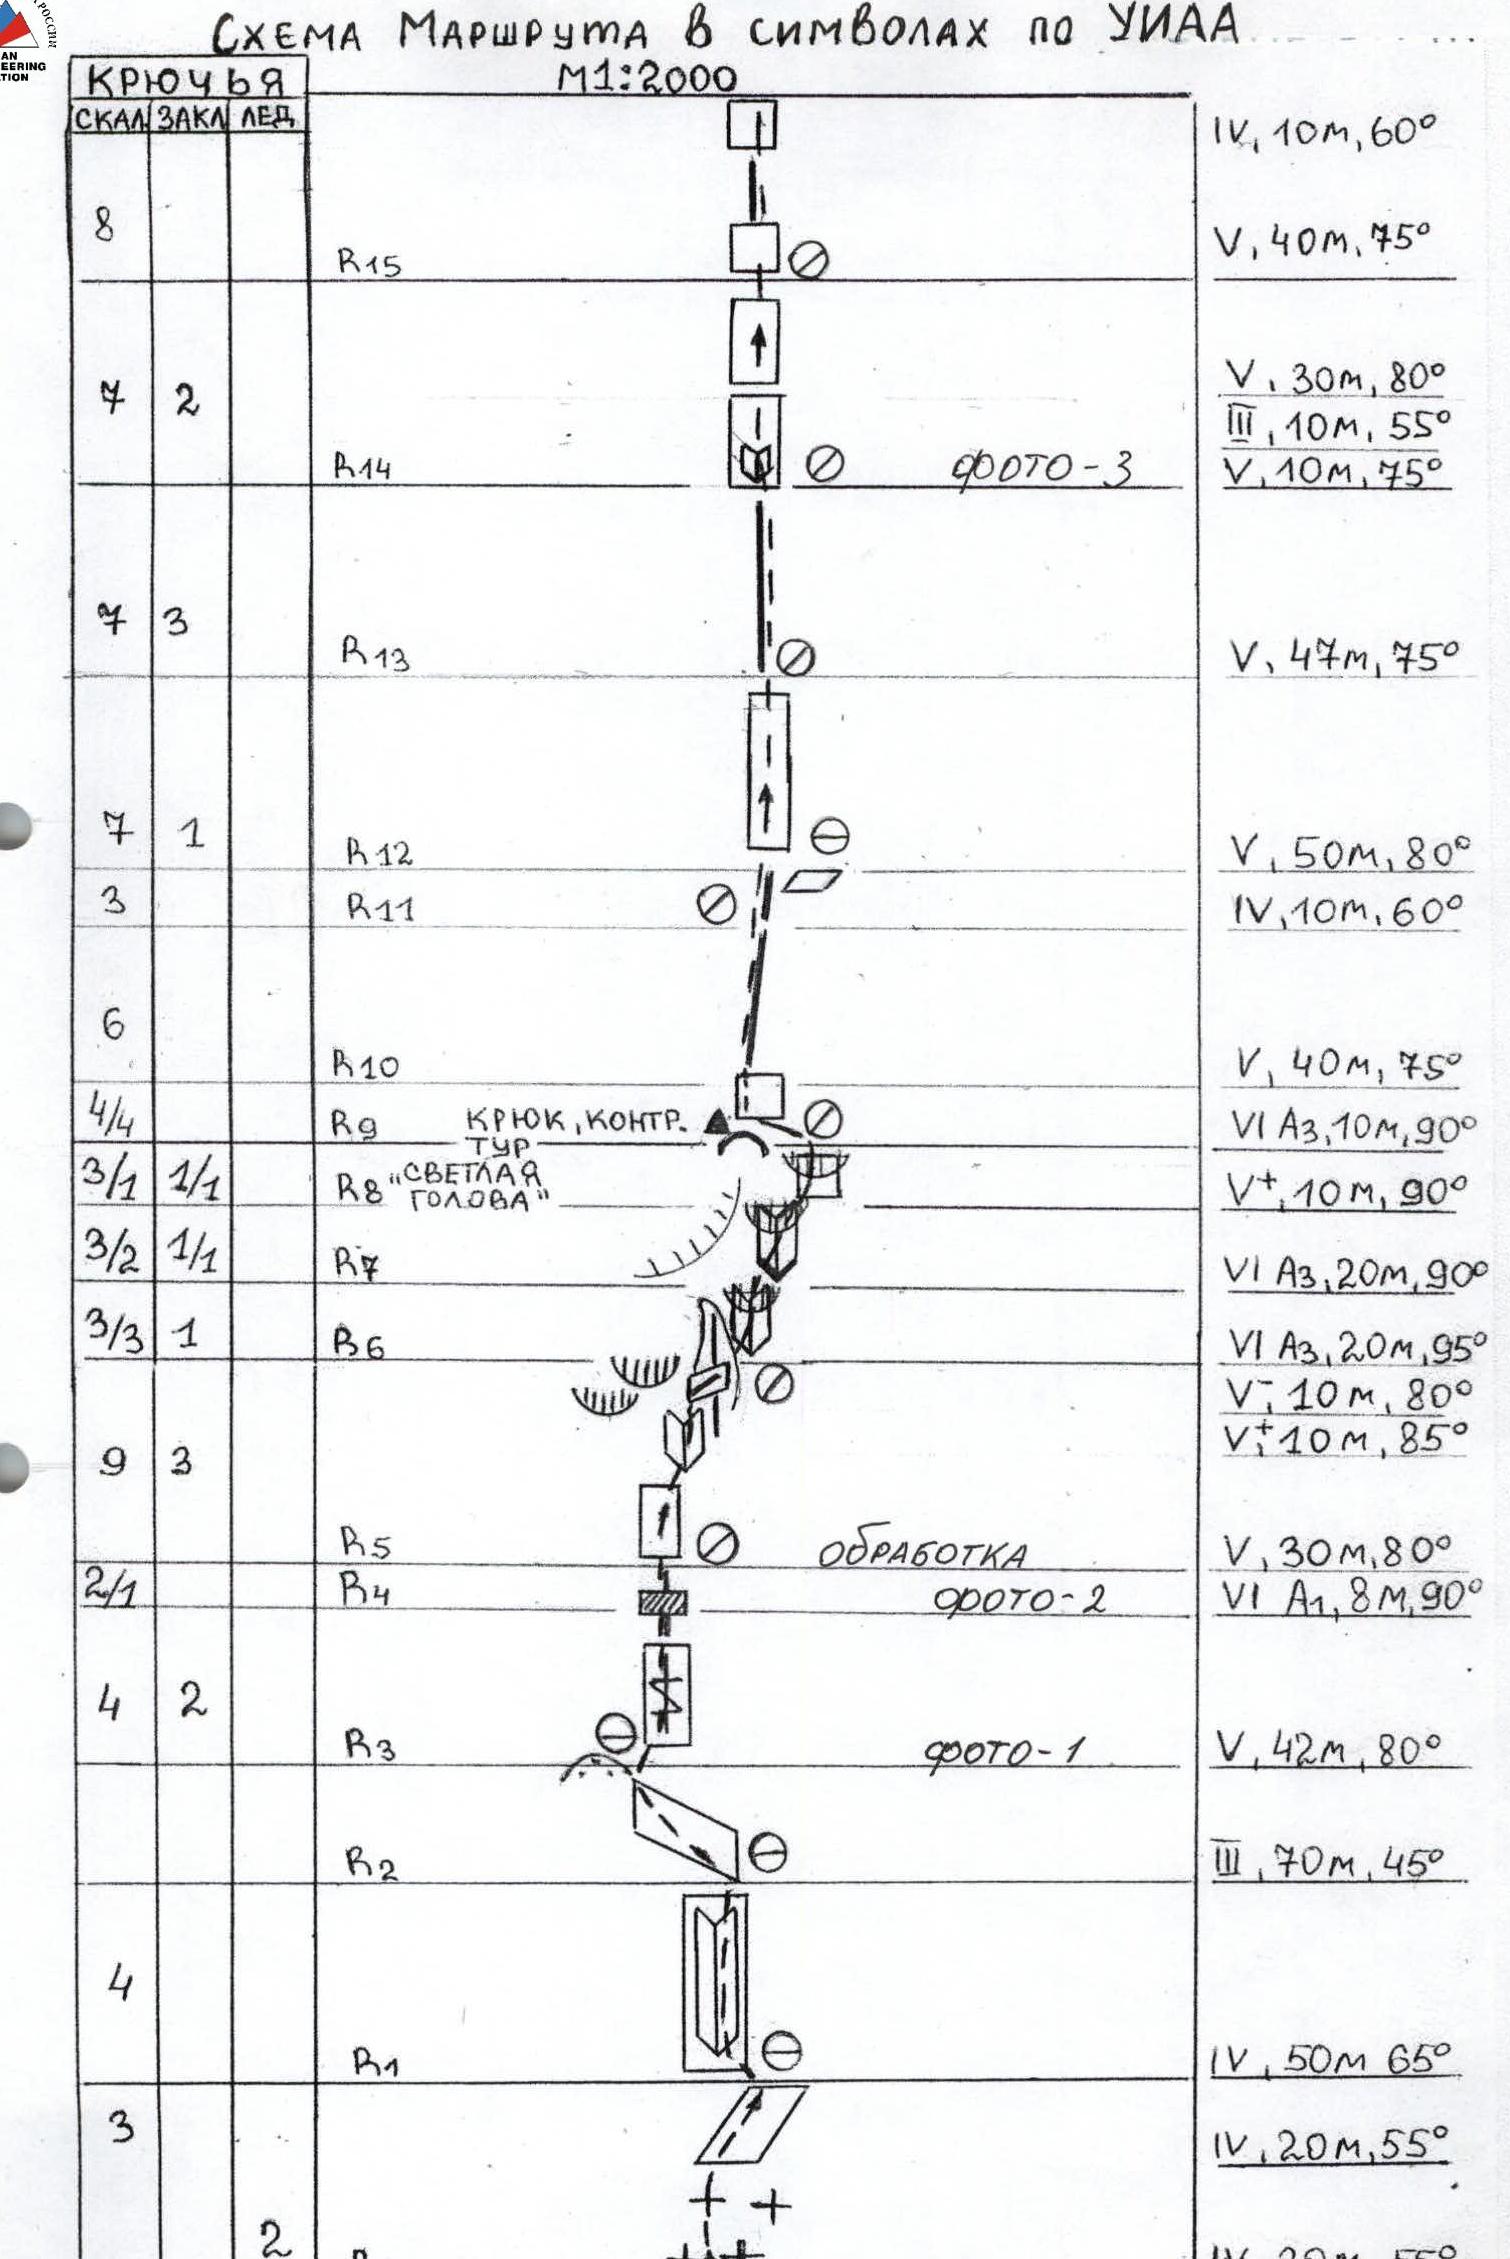 РОССИИ
AN
EERING
TION
СХЕМА МАРШРУТА В СИМВОЛАХ ПО УИАА
КРЮЧЬЯ
М1:2000
СКАЛ ЗАКЛ ЛЕД
IV, 10м, 60°
8
V, 40м, 75°
R15
V, 30м, 80°
7 2
III, 10м, 55°
R14 ФОТО-3 V, 10м, 75°
7 3
R13 V, 47м, 75°
7 1
R12 V, 50м, 80°
3 R11 IV, 10м, 60°
6
R10 V, 40м, 75°
4/4 R9 КРЮК, КОНТР. VI А3, 10м, 90°
ТУР
3/1 1/1 R8 "СВЕТЛАЯ V+, 10м, 90°
ГОЛОВА"
3/2 1/1 R7 VI А3, 20м, 90°
3/3 1 R6 VI А3, 20м, 95°
V-, 10м, 80°
V+, 10м, 85°
9 3
R5 ОБРАБОТКА V, 30м, 80°
2/1 R4 ФОТО-2 VI А1, 8м, 90°
4 2
R3 ФОТО-1 V, 42м, 80°
R2 III, 70м, 45°
4
R1 IV, 50м 65°
3
IV, 20м, 55°
2